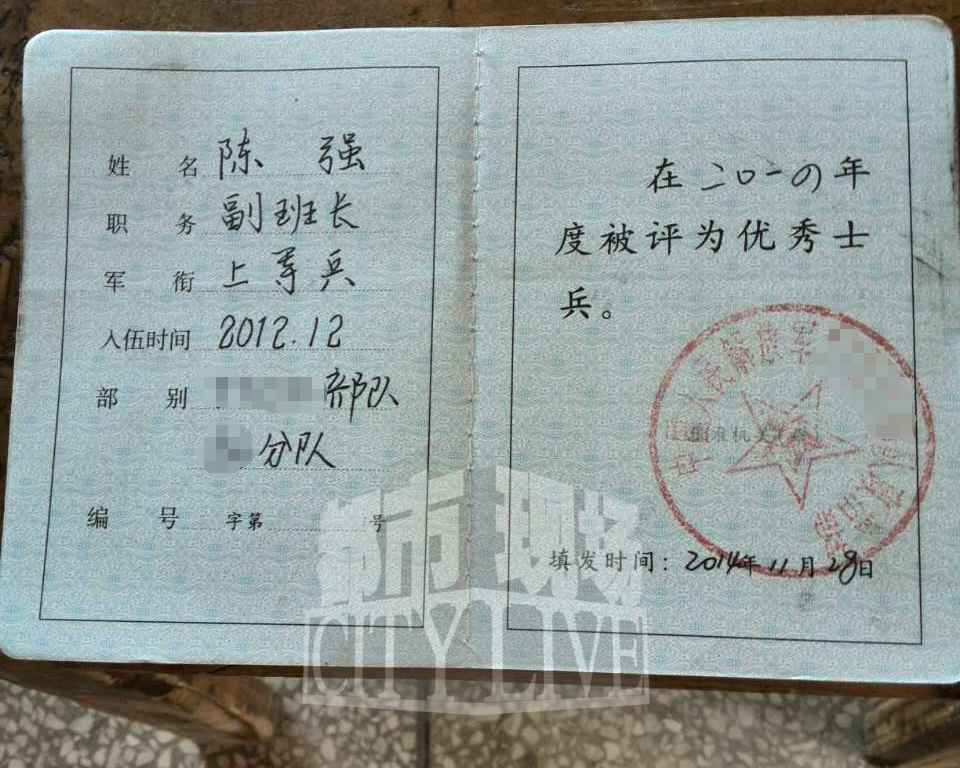 姓 名 陈 强
职 务 副班长
军 衔 上等兵
入伍时间 2012.12
部 别 部队
分队
编 号 字第 号
在二〇一四年
度被评为优秀士
兵。
中国人民解放军
批准机关(章)
填发时间：2014年11月28日
都市现场
CITY LIVE